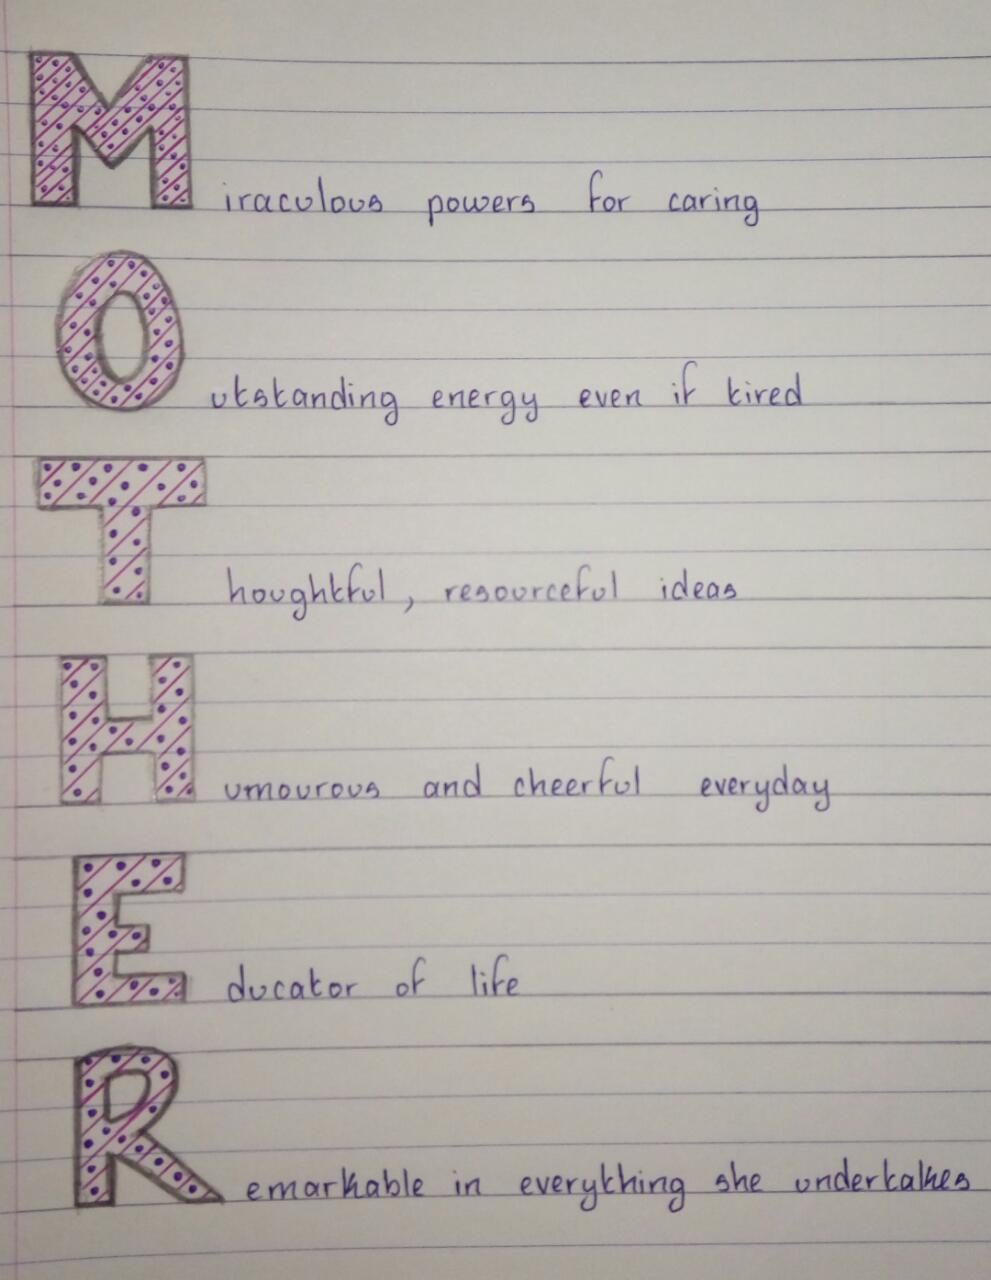 Miraculous powers for caring
Outstanding energy even if tired
Thoughtful, resourceful ideas
Humourous and cheerful everyday
Educator of life
Remarkable in everything she undertakes